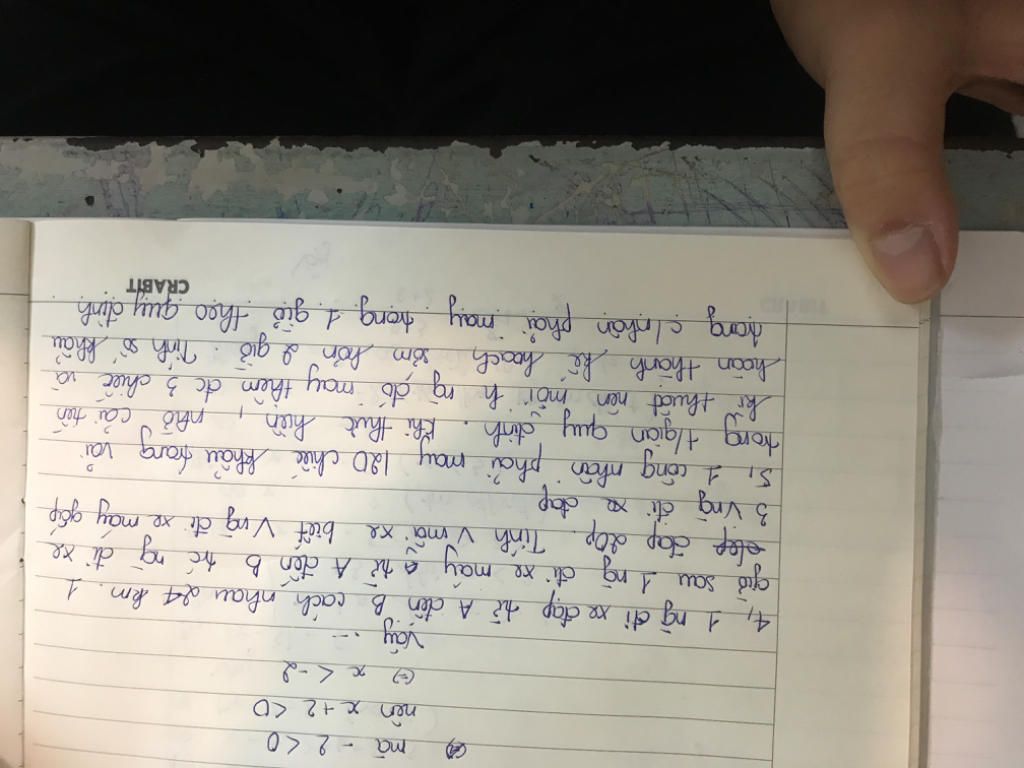 mà -2 < 0
nên x + 2 < 0
(=) x < -2
Vậy ...
4, 1 ng đi xe đạp từ A đến B cách nhau 24 km. 1
giờ sau 1 ng đi xe máy từ A đến B trc ng đi xe
đạp 20p. Tính V mỗi xe biết Vng đi xe máy gấp
3 Vng đi xe đạp
5, 1 công nhân phải may 120 chiếc khẩu trang vải
trong t/gian quy định. Khi thực hiện, nhờ cải tiến
kĩ thuật nên mỗi h ng đó may thêm đc 3 chiếc và
hoàn thành kế hoạch sớm hơn 2 giờ. Tính số khẩu
trang c/nhân phải may trong 1 giờ theo quy định
CRABIT